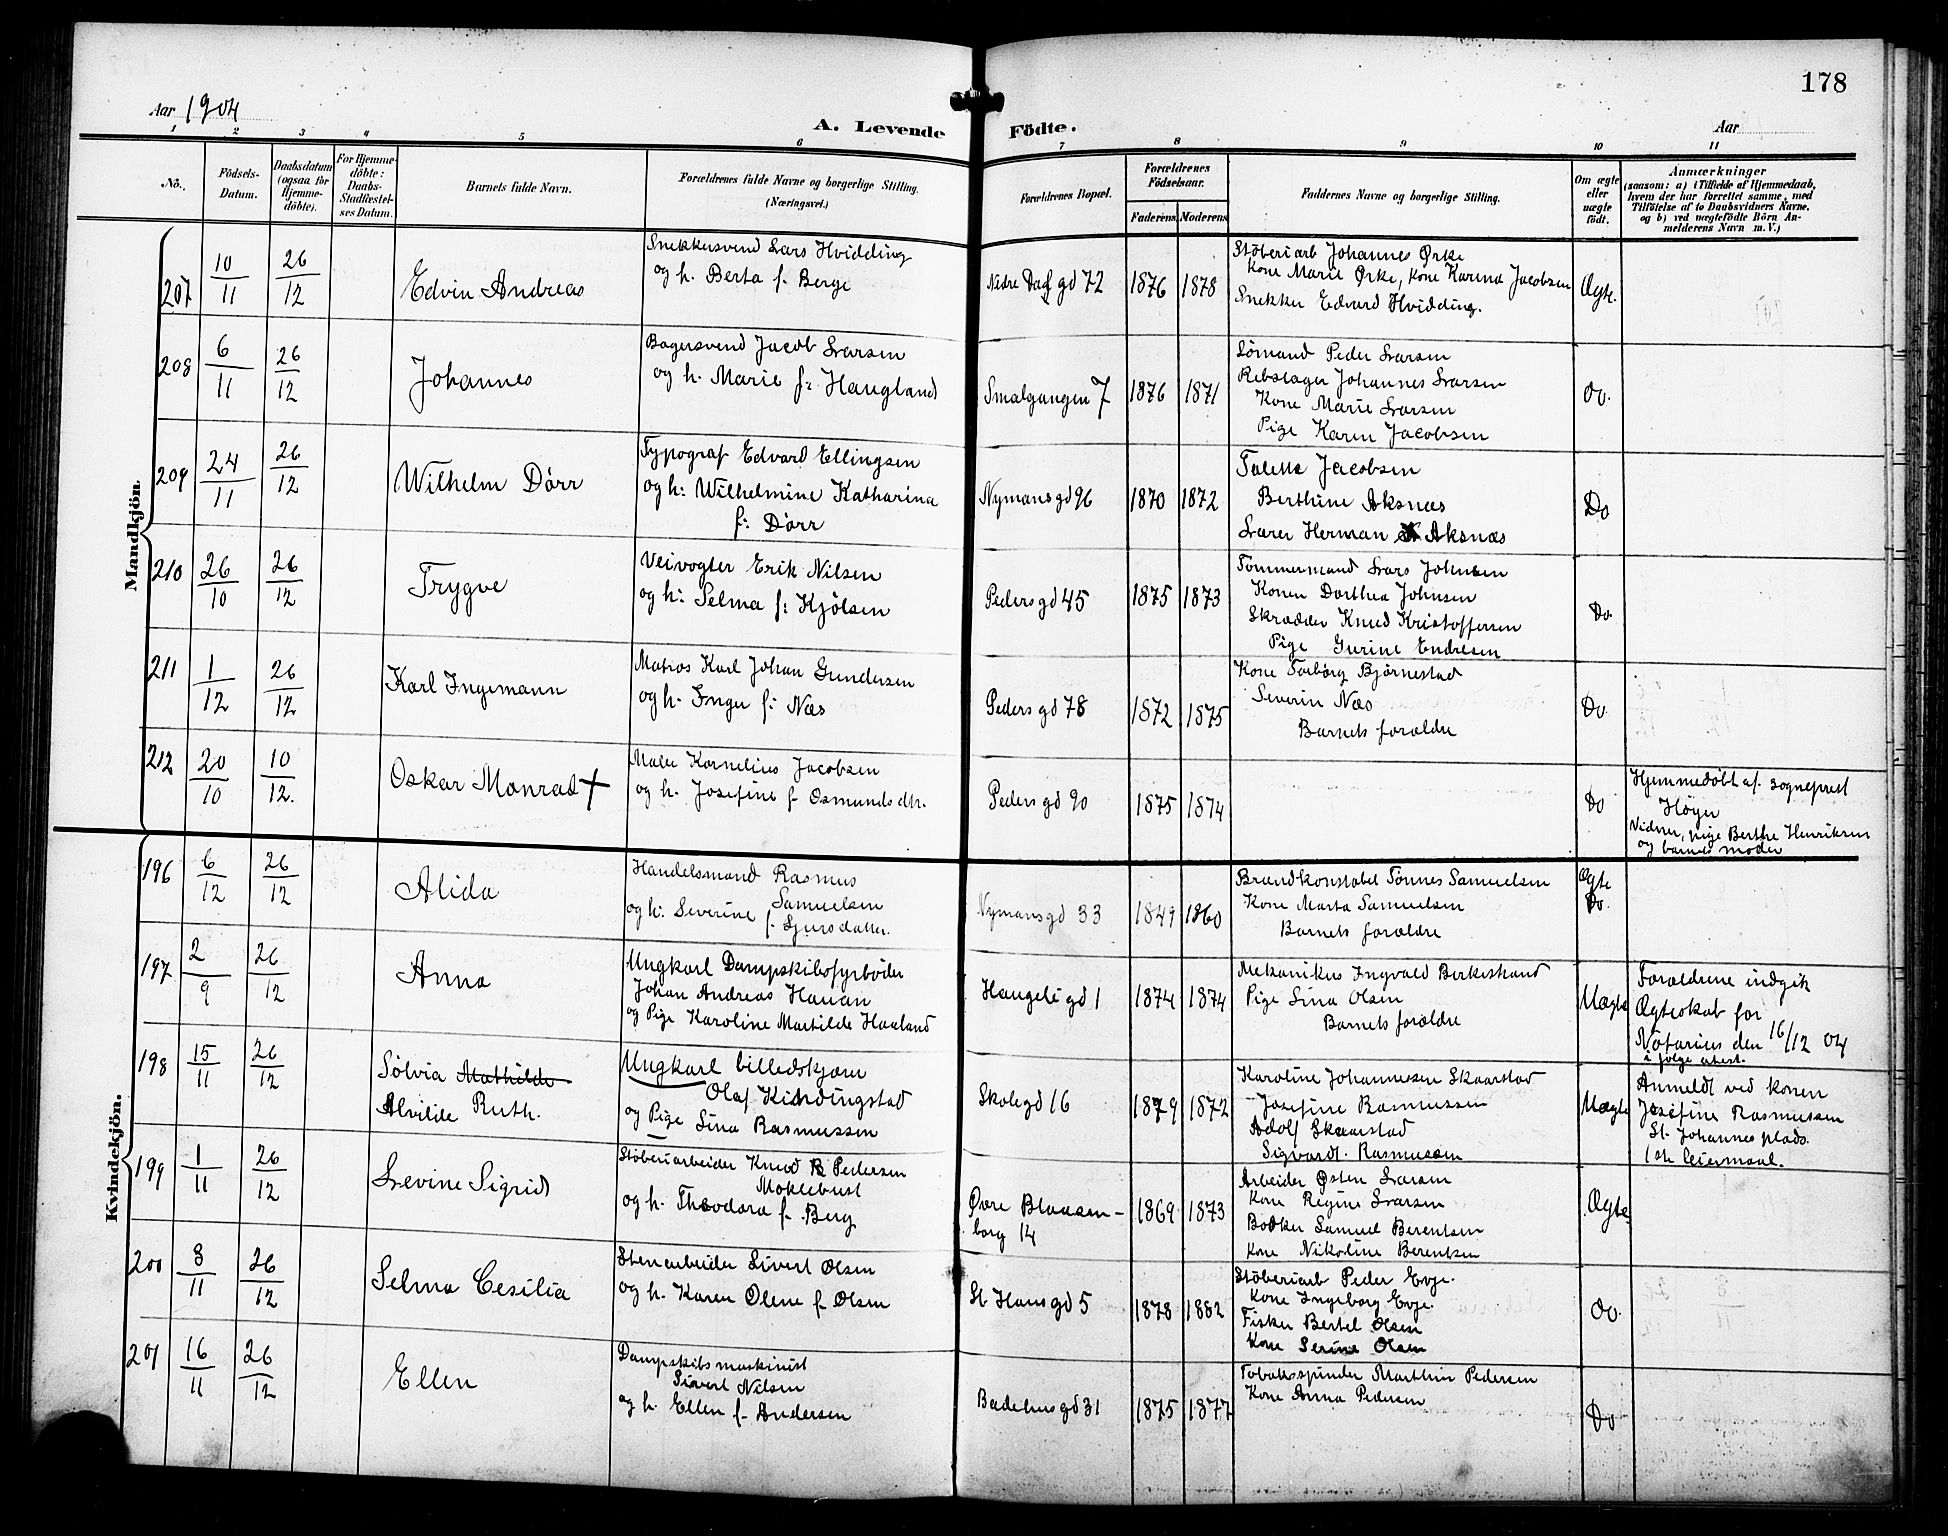 178
Aar 1904
A. Levende Födte.
Aar
1 2 3 4 5 6 7 8 9 10 11
No.
Födsels-
Datum.
Daabsdatum
(ogsaa for
Hjemme-
döbte).
For Hjemme-
döbte:
Daabs-
Stadfæstel-
ses Datum.
Barnets fulde Navn.
Forældrenes fulde Navne og borgerlige Stilling.
(Næringsvei.)
Forældrenes Bopæl.
Forældrenes
Födselsaar.
Faderens Moderens
Faddernes Navne og borgerlige Stilling.
Om ægte
eller
uægte
födt.
Anmærkninger
(saasom: a) i Tilfælde af Hjemmedaab,
hvem der har forrettet samme, med
Tilföielse af to Daabsvidners Navne,
og b) ved uægtefödte Börn An-
melderens Navn m. V.)
Mandkjön.
207
10/11
26/12
Edvin Andreas
Snekkersvend Lars Hvidding
og h. Berta f. Berge
Nedre Dalgd 72
1876
1878
Stöberiarb Johannes Ørke
Kone Marie Ørke, Kone Karina Jacobsen
Snekker Edvard Hvidding.
Ægte.
208
6/11
26/12
Johannes
Bagersvend Jacob Larsen
og h. Marie f: Haugland
Smalgangen 7
1876
1871
Sömand Peder Larsen
Rebslager Johannes Larsen
Kone Marie Larsen
Pige Karen Jacobsen
Do.
209
24/11
26/12
Wilhelm Dörr
Typograf Edvard Ellingsen
og h: Wilhelmine Katharina
f: Dörr
Nymansgd 96
1870
1872
Talette Jacobsen
Berthine Aksnæs
Lærer Herman Aksnæs
Do
210
26/10
26/12
Trygve
Veivogter Erik Nilsen
og h: Selma f: Kjölsen
Pedersgd 45
1875
1873
Tömmermand Lars Johnsen
Konen Dorthea Johnsen
Skrædder Knud Kristoffersen
Pige Gurine Endresen
Do.
211
1/12
26/12
Karl Ingemann
Matros Karl Johan Gundersen
og h. Inger f: Næs
Pedersgd 78
1872
1875
Kone Torborg Björnestad
Severin Næs
Barnets forældre
Do.
212
20/10
10/12.
Oskar Monrad +
Maler Kornelius Jacobsen
og h. Josefine f. Osmundsdtr.
Pedersgd 90
1875
1874
Do
Hjemmedöbt af. sogneprest
Höyer
Vidner, pige Berthe Henriksen
og barnets moder
Kvindekjön.
196
6/12
26/12
Alida
Handelsmand Rasmus
Samuelsen
og h: Severine f. Sjursdatter.
Nymansgd 33
1849
1860
Brandkonstabel Tönnes Samuelsen
Kone Marta Samuelsen
Barnets forældre
Ægte
Do.
197
2/9
26/12
Anna
Ungkarl Dampskibsfyrböder
Johan Andreas Hauan
og Pige Karoline Martilde Haaland
Haugeligd 1
1874
1874
Mekanikus Ingvald Birkestrand
Pige Lina Olsen
Barnets forældre
Uægte
Forældrene indgik
Ægteskab for
Notarius den 16/12 04
i fölge attest.
198
15/11
26/12
Sölvia Mathilde
Alvilde Ruth.
Ungkarl billedskjærer
Olaf Kindingstad
og Pige Lina Rasmussen
Skolegd 16
1879
1872
Karoline Johannesen Skaarstad
Josefine Rasmussen
Adolf Skaarstad
Sigvardt. Rasmussen
Uægte
Anmeldt ved konen
Josefine Rasmussen
St. Johannes plads.
1ste leiermaal.
199
1/11
26/12
Levine Sigrid
Stöberiarbeider Knud B Pedersen
Moklebust
og h. Theodora f. Berg
Øvre Blaasen-
borg 14
1869
1873
Arbeider Østen Larsen
Kone Regine Larsen
Bødker Samuel Berentsen
Kone Nikoline Berentsen
Ægte
200
8/11
26/12
Selma Cesilia
Stenarbeider Sivert Olsen
og h. Karen Olene f. Olsen
St Hansgd 5
1878
1882
Stöberiarb Peder Evje.
Kone Ingeborg Evje.
Fisker Bertel Olsen
Kone Serine Olsen
Do.
201
16/11
26/12
Ellen
Dampskibsmaskinist
Sivert Nilsen
og h. Ellen f. Andersen
Badehusgd 31
1875
1877
Tobaksspinder Marthin Pedersen
Kone Anna Pedersen
Do